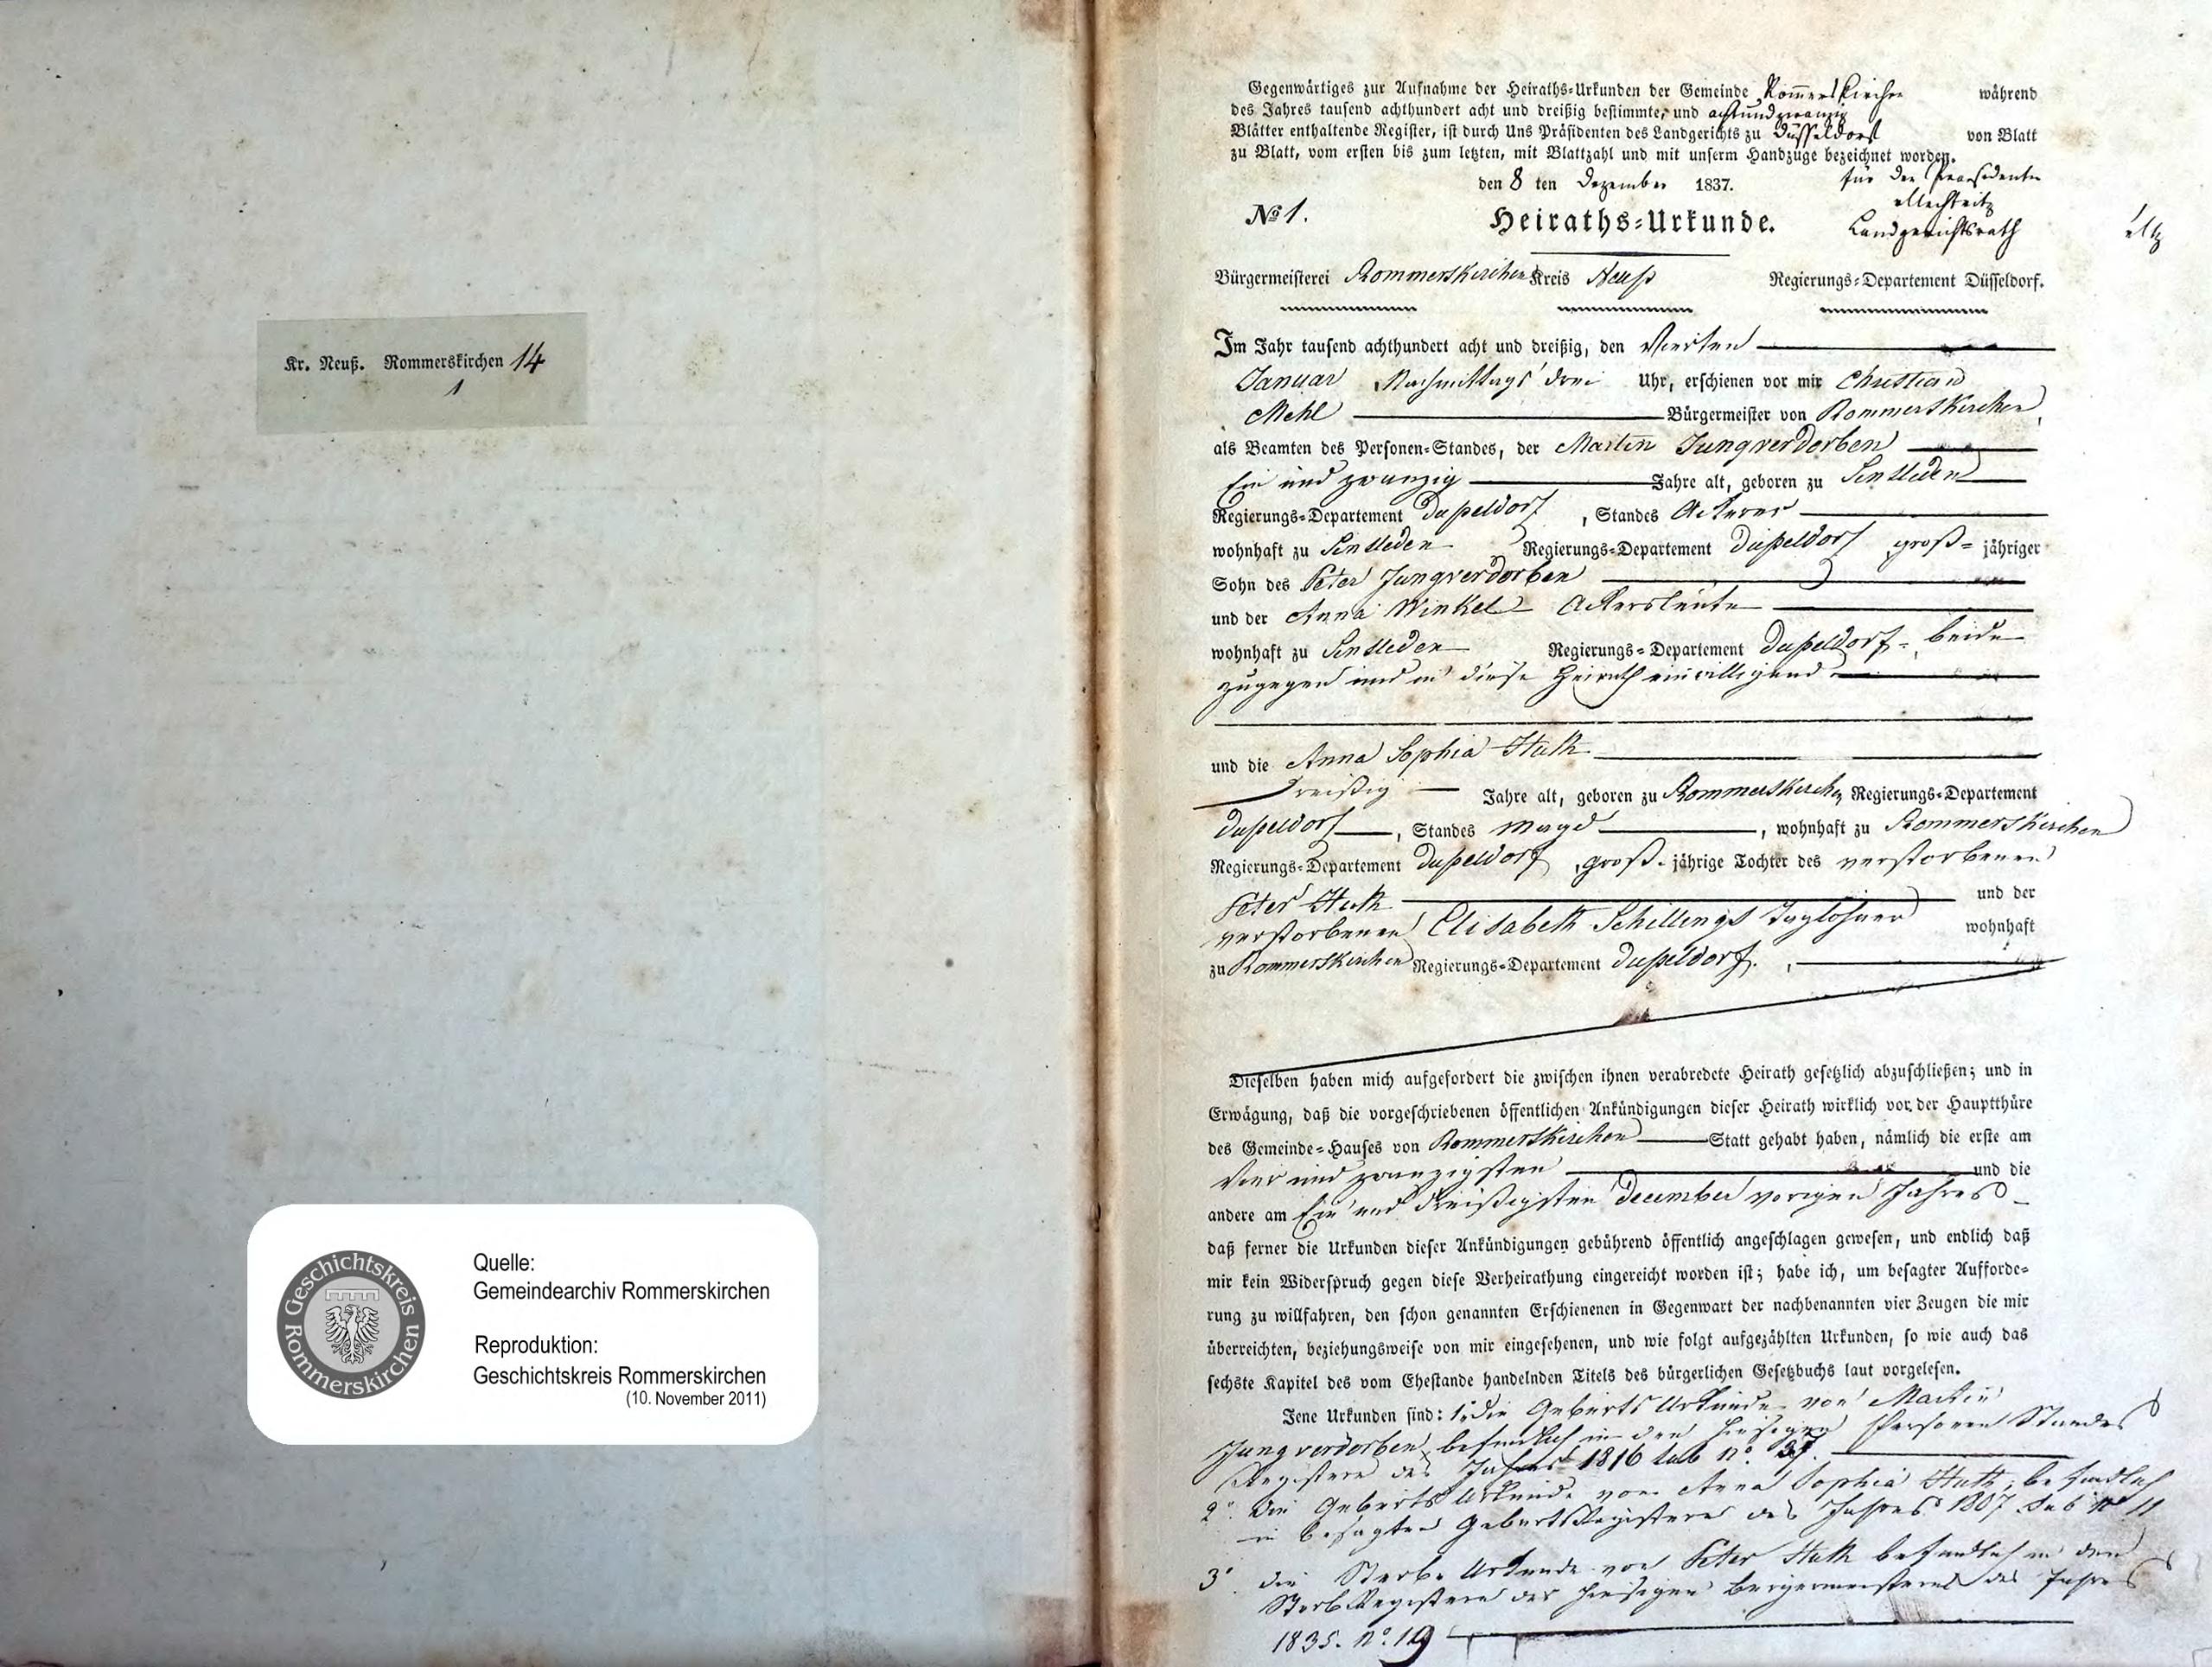 Kr. Neuß. Rommerskirchen 14
1
Geschichtskreis Rommerskirchen
Quelle:
Gemeindearchiv Rommerskirchen
Reproduktion:
Geschichtskreis Rommerskirchen
(10. November 2011)
Gegenwärtiges zur Aufnahme der Heiraths-Urkunden der Gemeinde Rommerskirchen während
des Jahres tausend achthundert acht und dreißig bestimmte, und achtundzwanzig
Blätter enthaltende Register, ist durch Uns Präsidenten des Landgerichts zu Düsseldorf von Blatt
zu Blatt, vom ersten bis zum letzten, mit Blattzahl und mit unserm Handzuge bezeichnet worden.
den 8 ten Dezember 1837. für den Praesidenten
Landgerichtsrath
No 1. Heiraths-Urkunde.
Bürgermeisterei Rommerskirchen Kreis Neuß Regierungs-Departement Düsseldorf.
Im Jahr tausend achthundert acht und dreißig, den Vierten
Januar Nachmittags drei Uhr, erschienen vor mir Christian
Mehl Bürgermeister von Rommerskirchen,
als Beamten des Personen-Standes, der Martin Jungverdorben
Ein und zwanzig Jahre alt, geboren zu
Regierungs-Departement Dußeldorf, Standes Ackerer
wohnhaft zu Regierungs-Departement Dußeldorf groß-jähriger
Sohn des Peter Jungverdorben
und der Anna Winkel Ackersleute
wohnhaft zu Regierungs-Departement Dußeldorf, beide
zugegen und in diese Heirath einwilligend
und die Anna Sophia Huth
Dreißig Jahre alt, geboren zu Rommerskirchen Regierungs-Departement
Dußeldorf, Standes Magd, wohnhaft zu Rommerskirchen
Regierungs-Departement Dußeldorf, groß-jährige Tochter des verstorbenen
Peter Huth und der
verstorbenen Elisabeth Schillings Taglöhner wohnhaft
zu Rommerskirchen Regierungs-Departement Dußeldorf.,
Dieselben haben mich aufgefordert die zwischen ihnen verabredete Heirath gesetzlich abzuschließen; und in
Erwägung, daß die vorgeschriebenen öffentlichen Ankündigungen dieser Heirath wirklich vor der Hauptthüre
des Gemeinde-Hauses von Rommerskirchen Statt gehabt haben, nämlich die erste am
Vier und zwanzigsten und die
andere am Ein und dreißigsten December vorigen Jahres
daß ferner die Urkunden dieser Ankündigungen gebührend öffentlich angeschlagen gewesen, und endlich daß
mir kein Widerspruch gegen diese Verheirathung eingereicht worden ist; habe ich, um besagter Aufforde-
rung zu willfahren, den schon genannten Erschienenen in Gegenwart der nachbenannten vier Zeugen die mir
überreichten, beziehungsweise von mir eingesehenen, und wie folgt aufgezählten Urkunden, so wie auch das
sechste Kapitel des vom Ehestande handelnden Titels des bürgerlichen Gesetzbuchs laut vorgelesen.
Jene Urkunden sind: 1. die Geburts Urkunde von Martin
Jungverdorben, befindlich in den hiesigen Personen Standes
Registern des Jahres 1816 sub no.
2. die Geburts Urkunde von Anna Sophia Huth, befindlich
in besagten Geburts Registern des Jahres 1807 sub no 11
3. die Sterbe Urkunde von Peter Huth befindlich in den
Sterb Registern der hiesigen Bürgermeisterei des Jahres
1835. no. 19